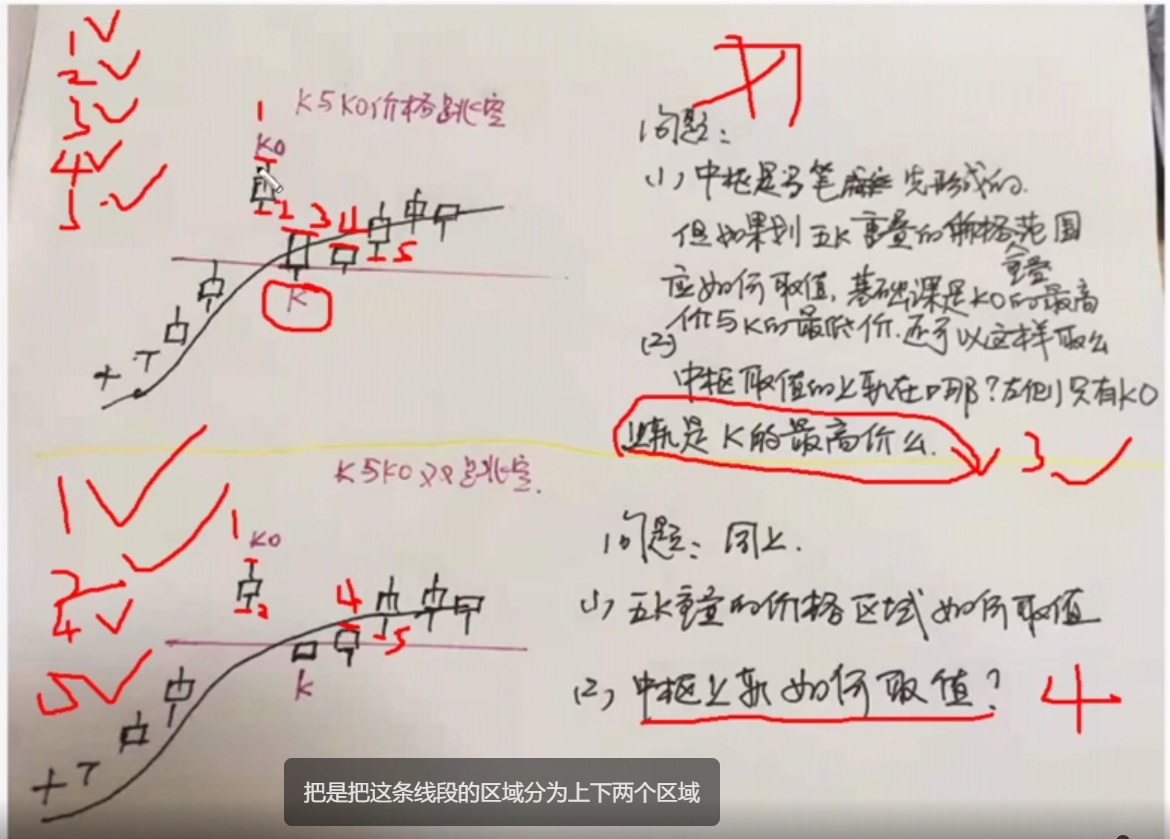 1
2
3
4
5
K与K0价格跳空
1
K0
2
3
4
5
K
+T
问题：
(1)中枢是与笔先形成的.
但如果划五K重叠的价格范围
重叠
应如何取值，基础课是K0的最高
价与K的最低价.还可以这样取么
(2)
中枢取值的上轨在哪？左侧只有K0
上轨是K的最高价么.
3
K与K0又又跳空.
1
2
4
5
1
K0
2
4
5
K
+T
问题：同上.
(1)五K重叠的价格区域如何取值
(2)中枢上轨如何取值？
4
把是把这条线段的区域分为上下两个区域